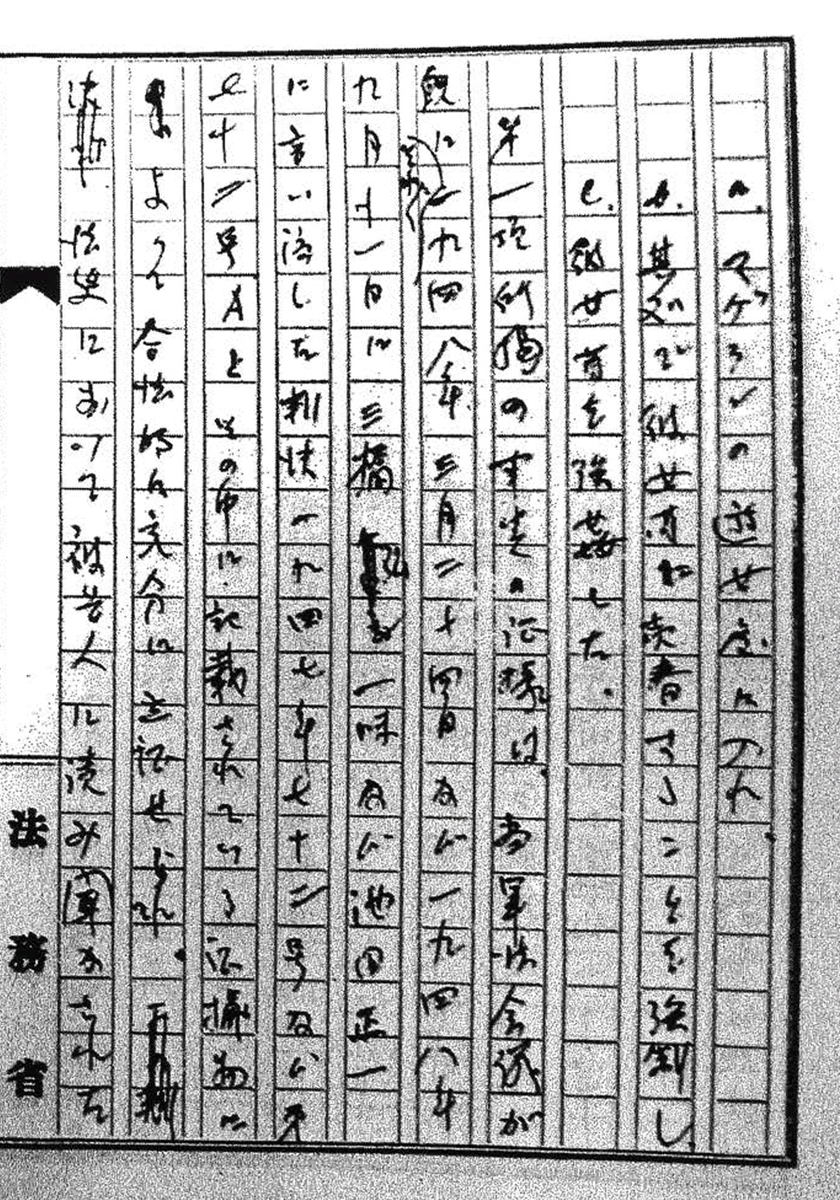 a. マゲランの遊女屋に入れ、
b. 其処で彼女等に売春することを強制し
c. 彼女等を強姦した。
第一項所掲の事実の証拠は、当軍法会議が
既に一九四八年三月二十四日及ビ一九四八年
九月十一日に三橋 一味及ビ池田正一
に言い渡した判決一九四七年七十二号及ビ
七十二号Aとその中に記載されている証拠物に
よって合法的に充分に立証せられ
法廷において被告人に読み聞かされた
法務省